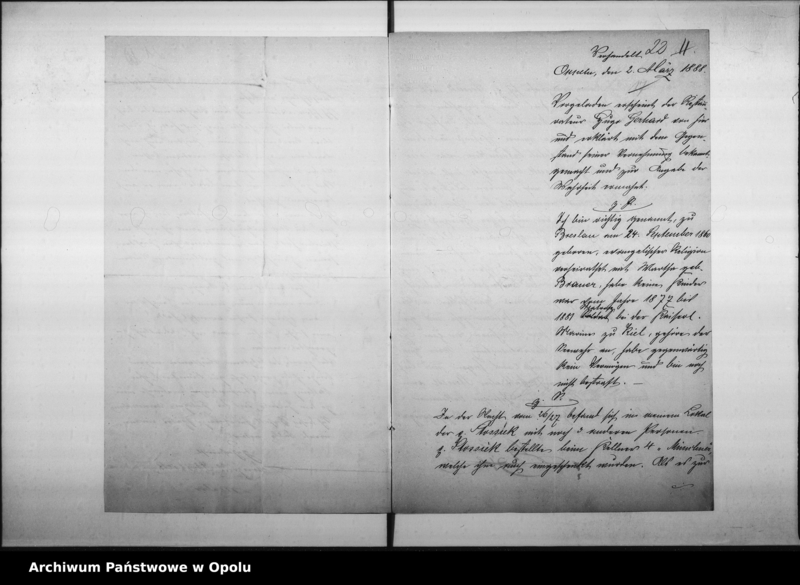 Verhandelt. 22 4.
den 2. März 1888.
Vorgeladen erscheint der Restau-
rateur Hugo Gerhard von hier
und erklärt mit dem Gegen-
stand seiner Vernehmung bekannt
gemacht und zur Angabe der
Wahrheit ermahnt.
z. P.
Ich bin richtig genannt, zu
Breslau am 24. September
geboren, evangelischer Religion
verheirathet mit Martha geb.
Brauer, habe keine Kinder
war vom Jahre 1877 bis
1881 bei der Kaiserl.
Marine zu Kiel, gehöre der
Seewehr an, habe gegenwärtig
kein Vermögen und bin noch
nicht bestraft. —
In der Nacht vom 26/27 befand sich in meinem Lokal
der mit noch 3 anderen Personen
bestellte beim Kellner 4
welche ihm auch eingeschenkt wurden. Als es zur
Archiwum Państwowe w Opolu